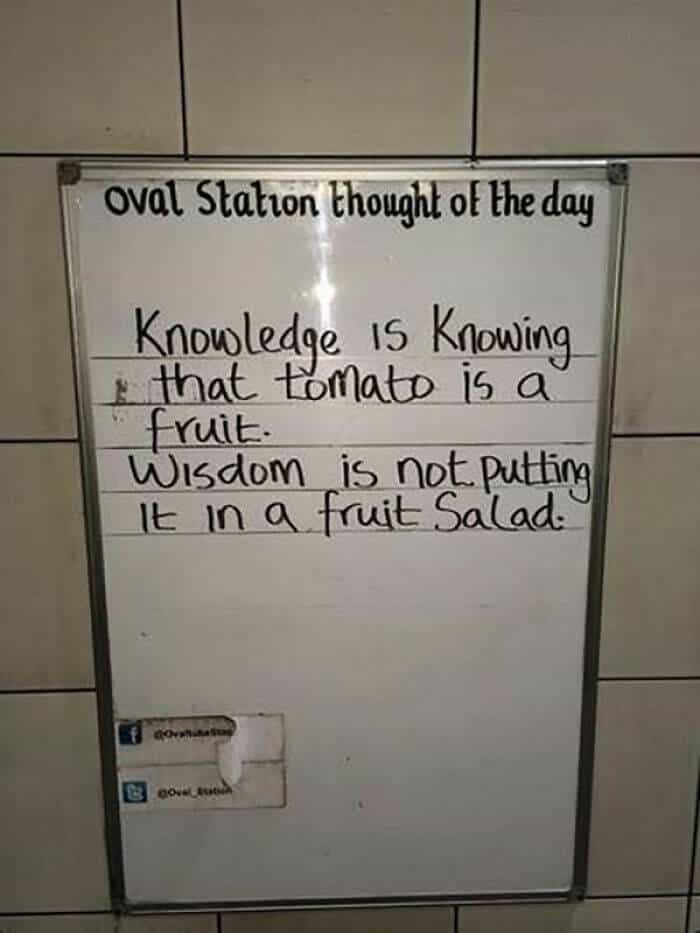 Oval Station thought of the day
Knowledge is Knowing
that tomato is a
fruit.
Wisdom is not putting
it in a fruit Salad.
@Oval_Station